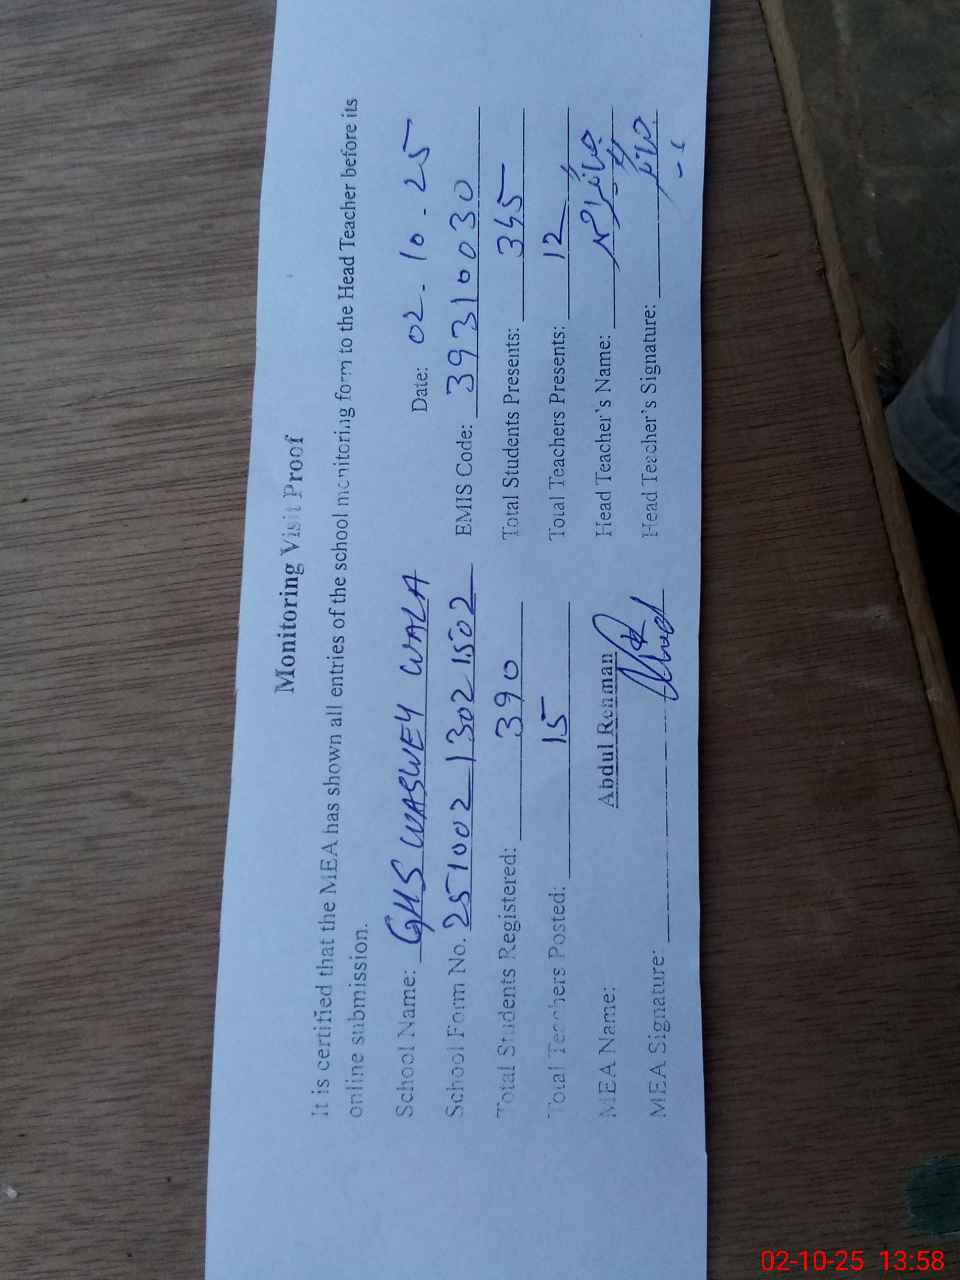 Monitoring Visit Proof
It is certified that the MEA has shown all entries of the school monitoring form to the Head Teacher before its
online submission.
School Name: GHS WASWEY WALA Date: 02-10-25
School Form No. 251002 13021502 EMIS Code: 39310030
Total Students Registered: 390 Total Students Presents: 345
Total Teachers Posted: 15 Total Teachers Presents: 12
MEA Name: Abdul Rehman Head Teacher's Name:
MEA Signature: Head Teacher's Signature:
02-10-25 13:58